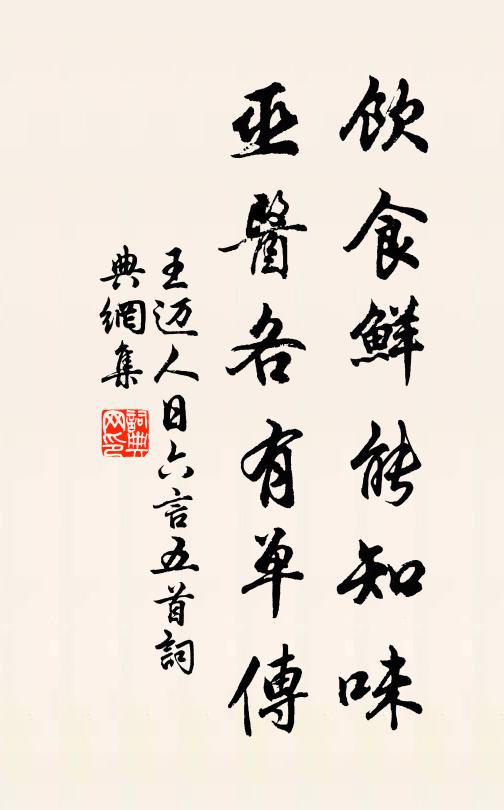 飲食鮮能知味
巫醫各有单傳
王迈人日六言五首詞
典網集
詞典
网印